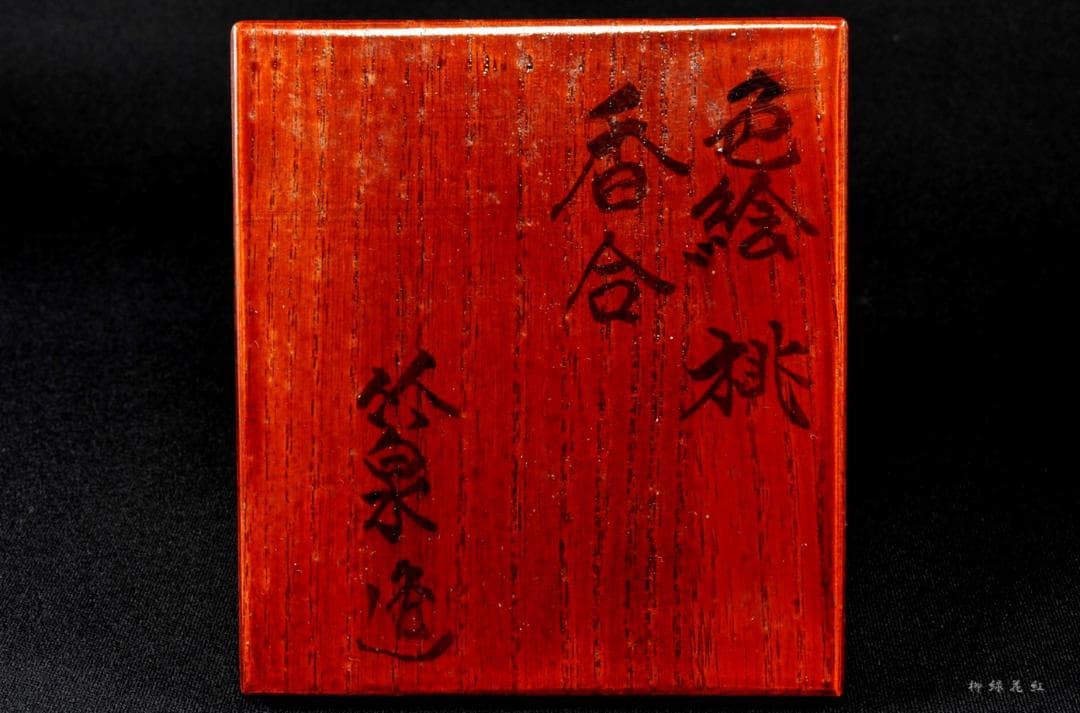 色繪桃
香合
竹泉造
柳緑花紅